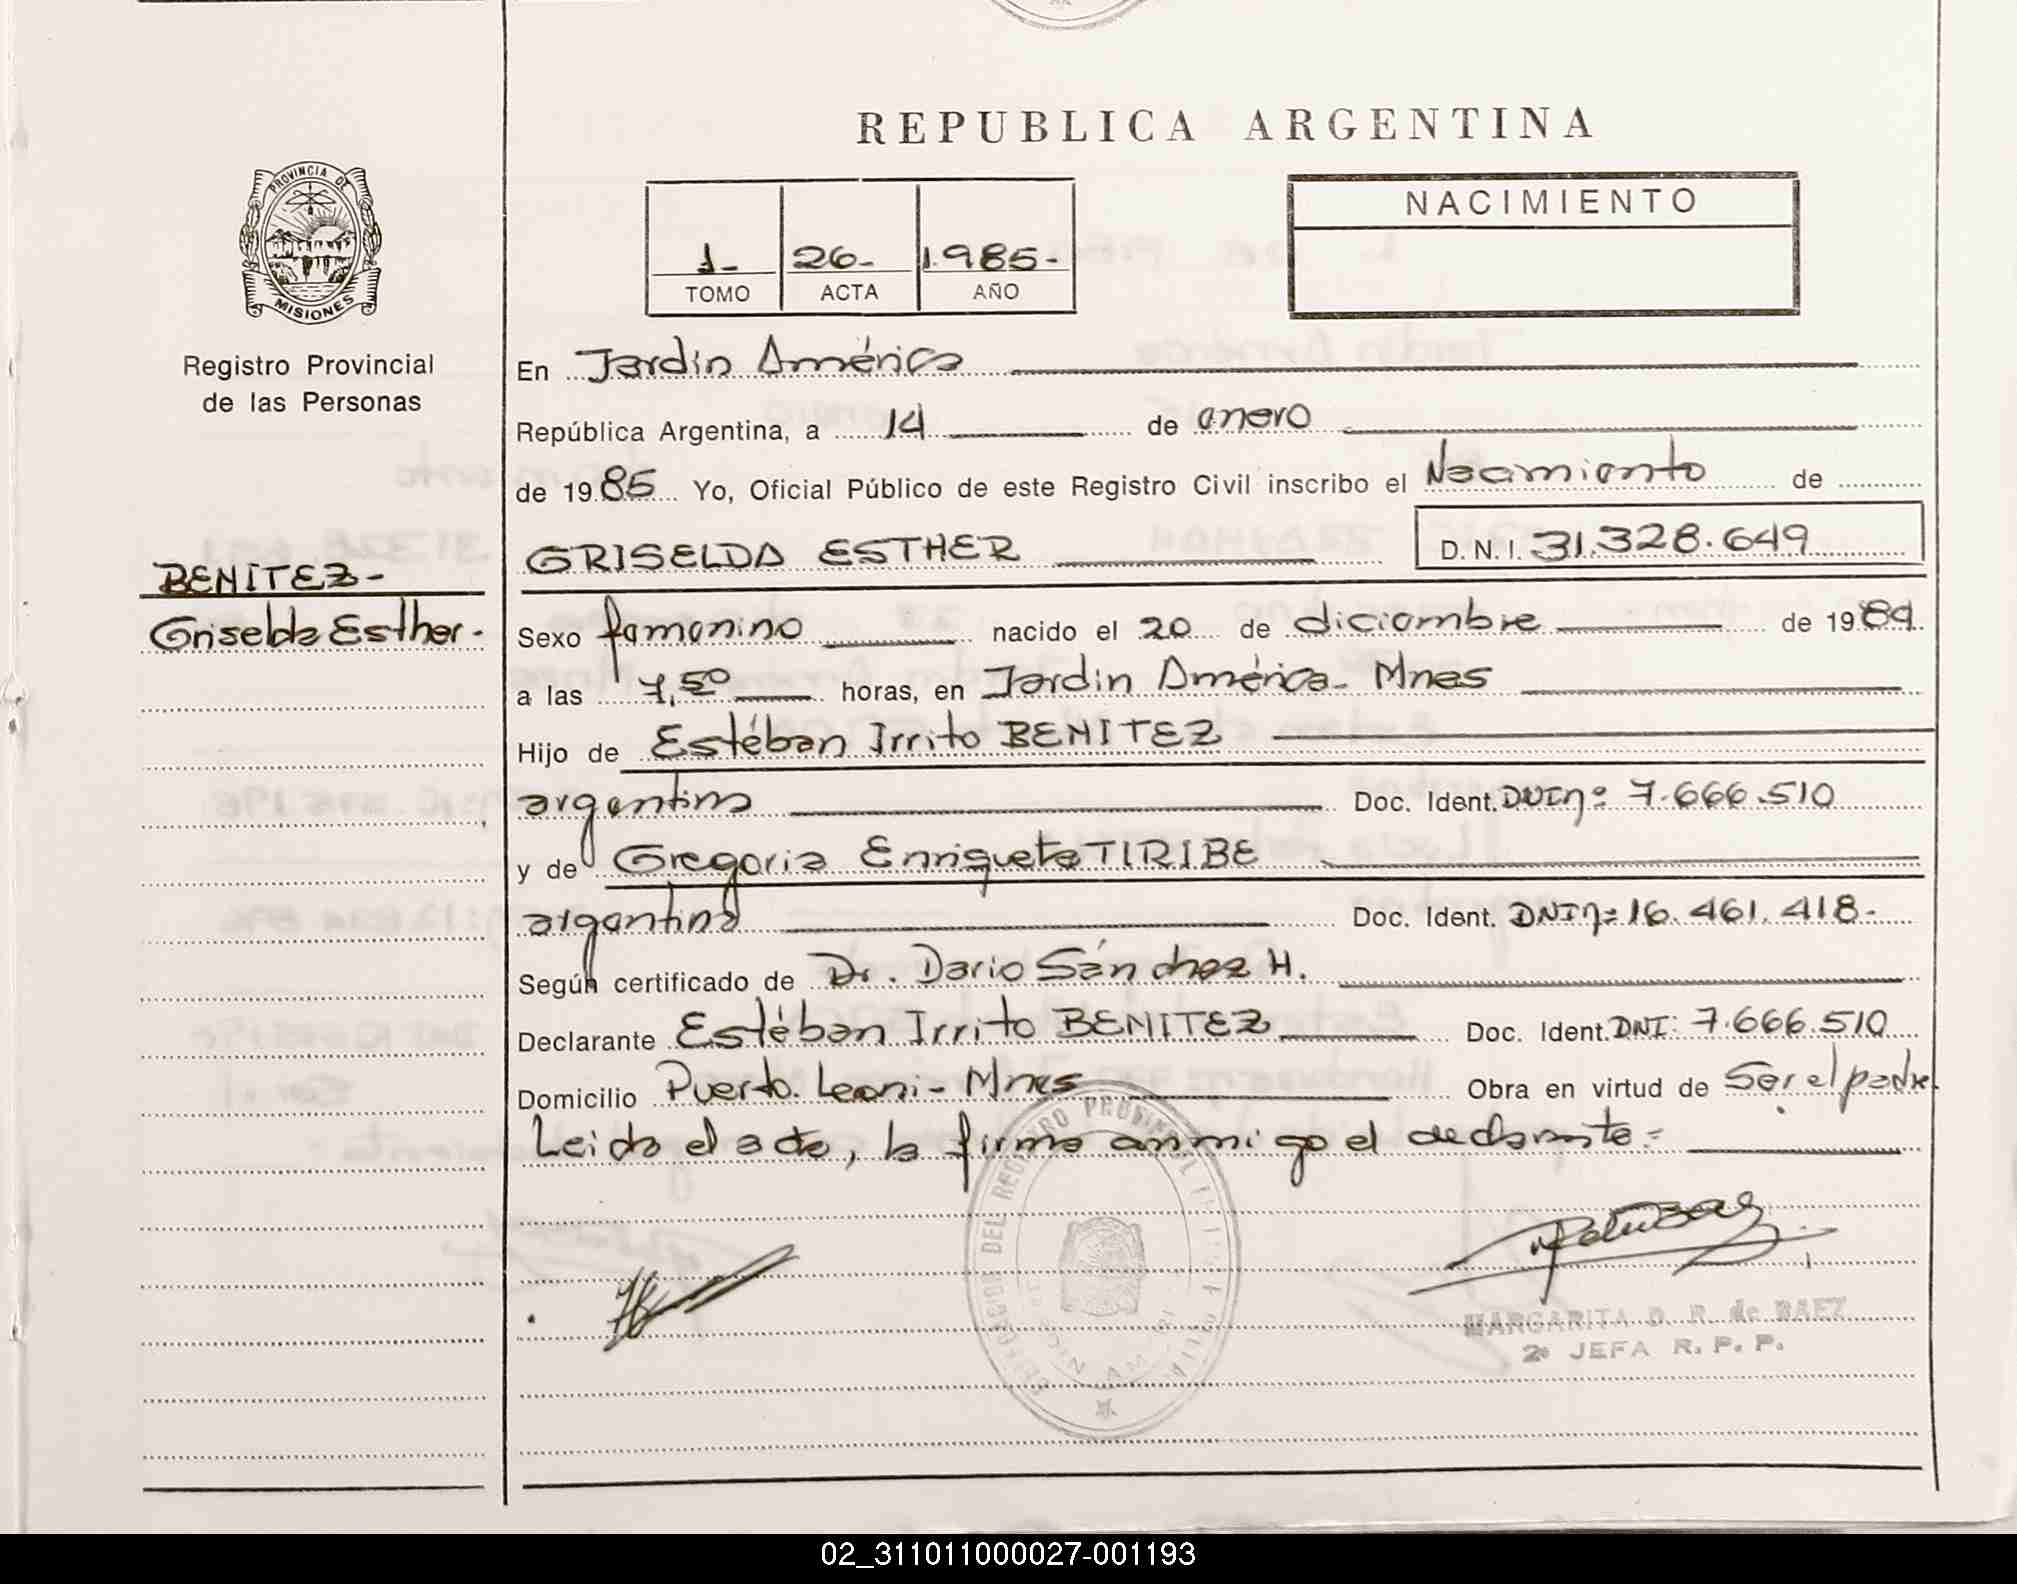 REPUBLICA ARGENTINA
PROVINCIA DE
MISIONES
Registro Provincial
de las Personas
1- 26- 1.985-
TOMO ACTA AÑO
NACIMIENTO
En Jardín América
República Argentina, a 14 de enero
de 1985 Yo, Oficial Público de este Registro Civil inscribo el Nacimiento de
GRISELDA ESTHER D. N. I. 31.328.649
BENITEZ-
Griselda Esther-
Sexo femenino nacido el 20 de diciembre de 1984
a las 7,50 horas, en Jardín América- Mnes
Hijo de Estéban Irrito BENITEZ
argentino Doc. Ident. DNInº 7.666.510
y de Gregoria Enriqueta TIRIBE
argentina Doc. Ident. DNInº 16.461.418-
Según certificado de Dr. Dario Sánchez H.
Declarante Estéban Irrito BENITEZ Doc. Ident. DNI: 7.666.510
Domicilio Puerto Leoni- Mnes Obra en virtud de Ser el padre.
Leida el acta, la firma conmigo el declarante=
MARGARITA D. R. de BAEZ
2º JEFA R. P. P.
02_311011000027-001193